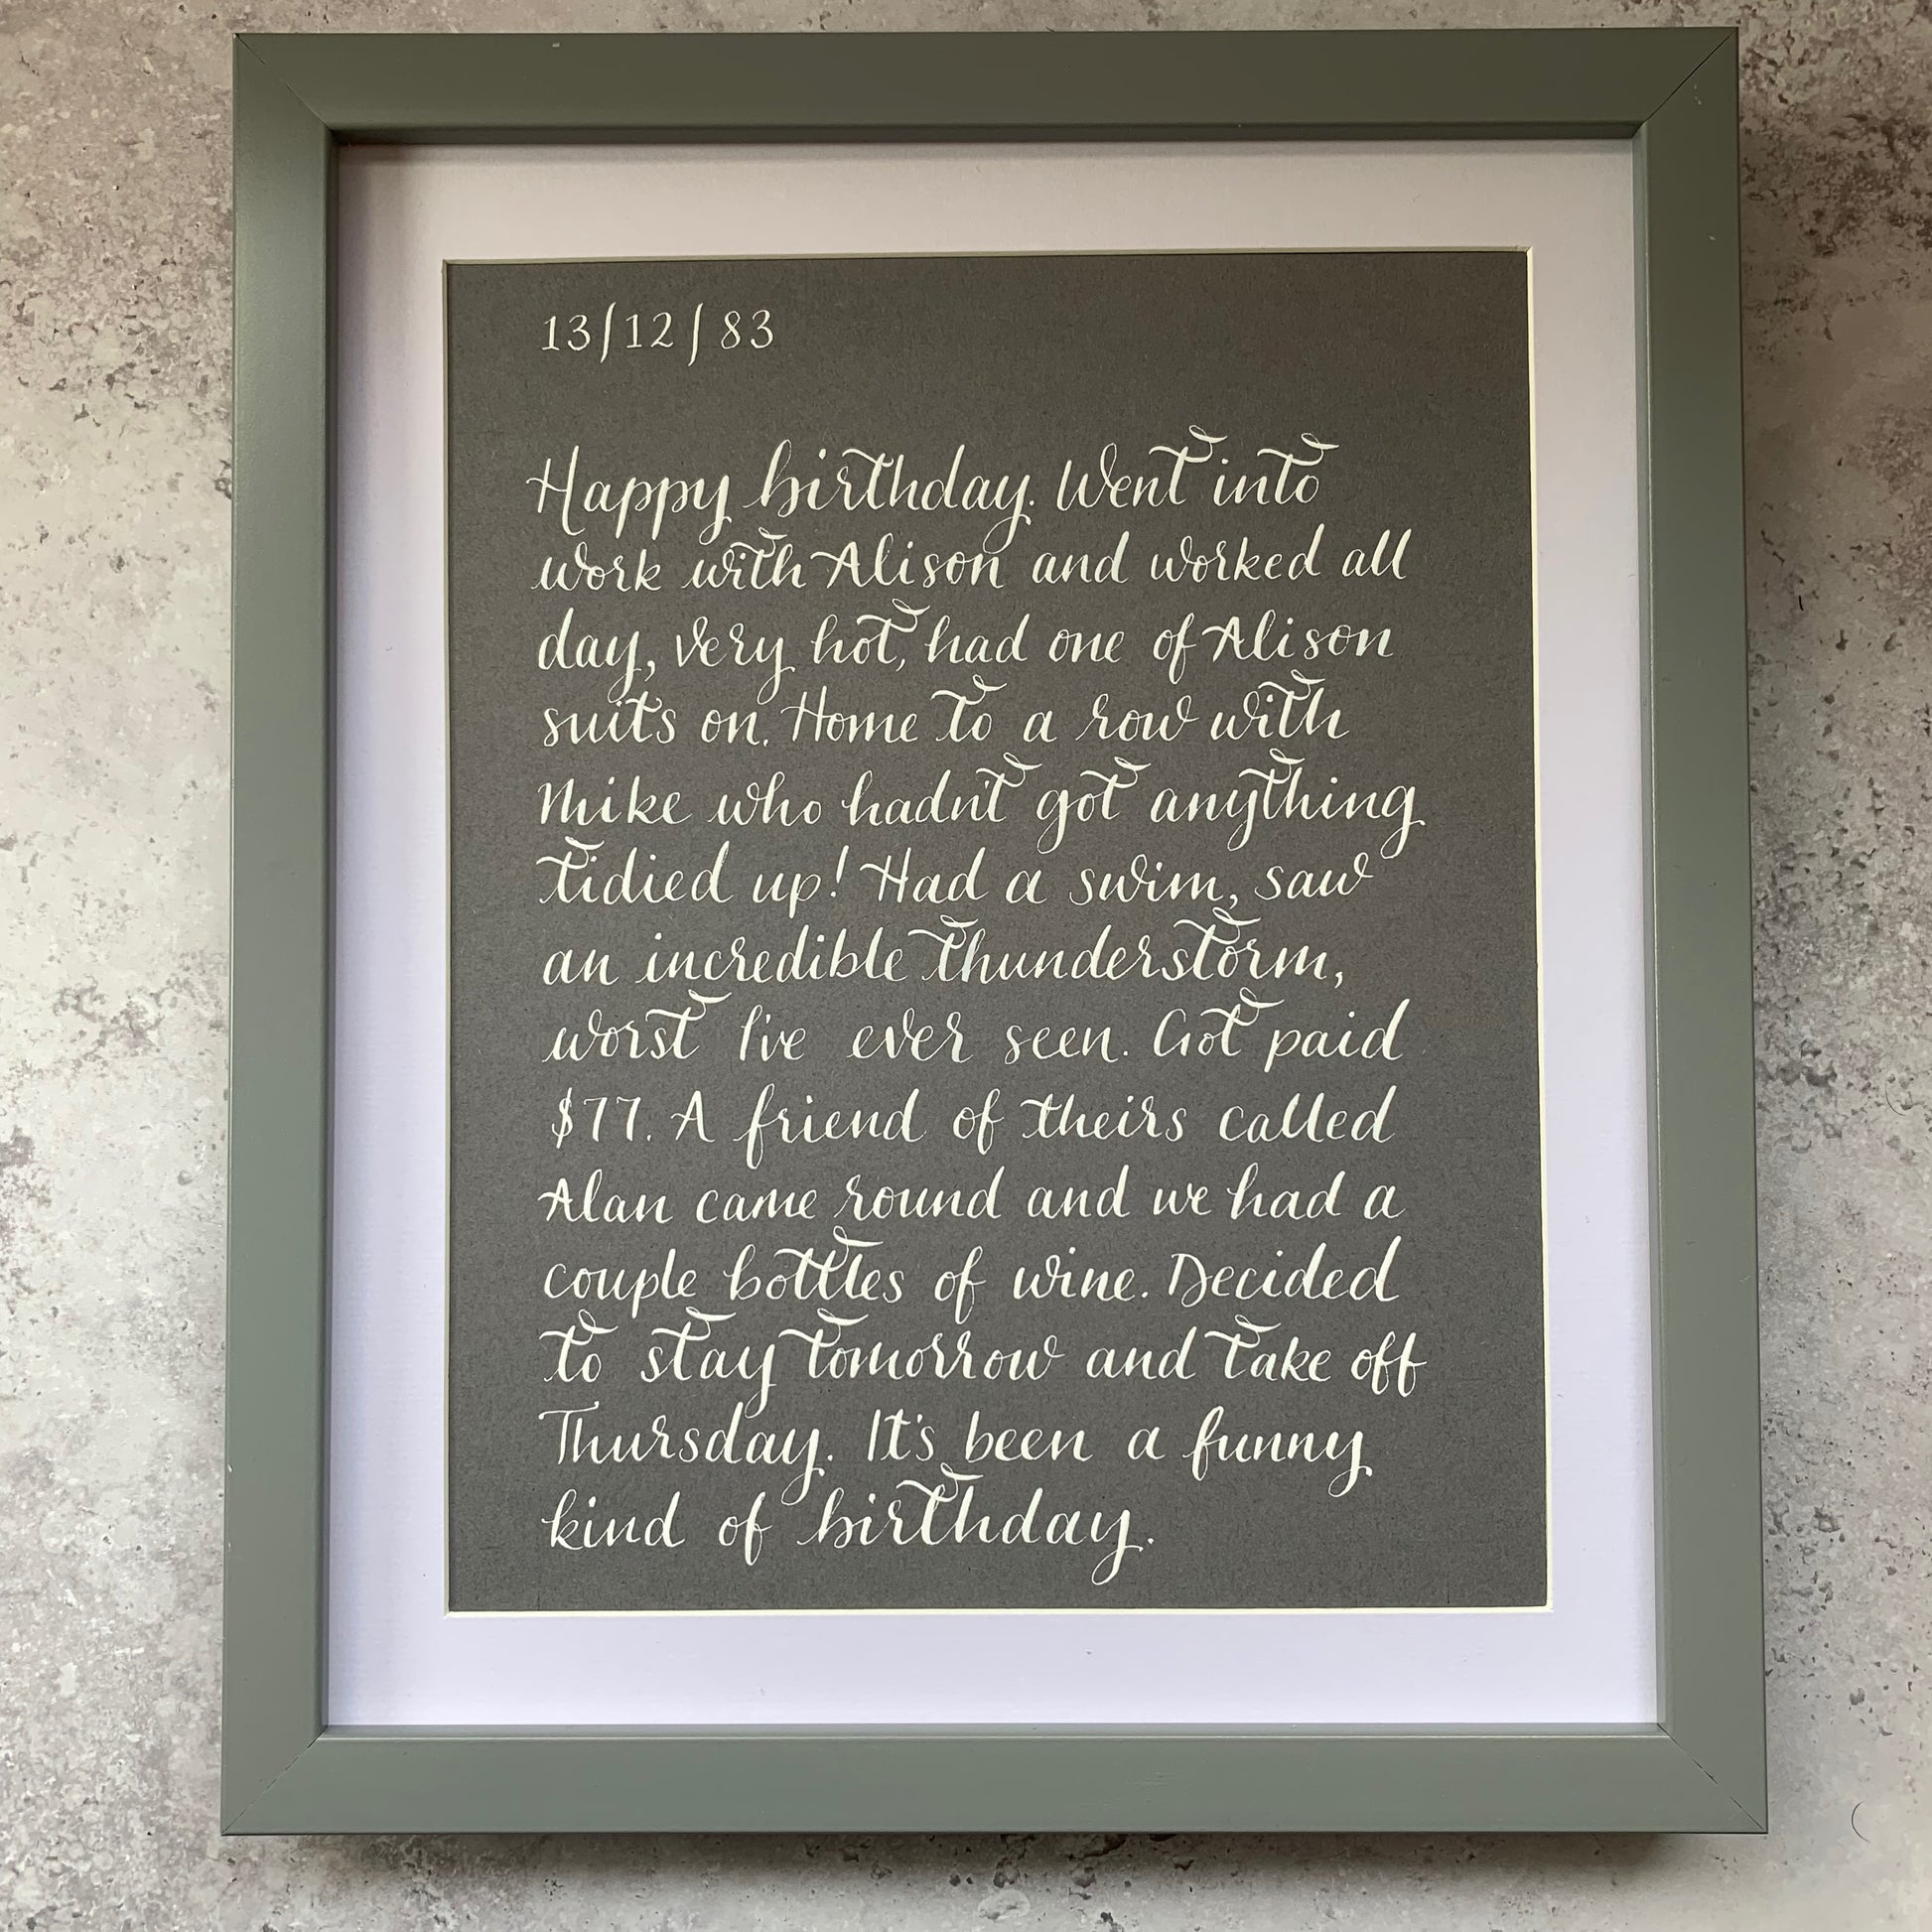 13/12/83
Happy birthday. Went into
work with Alison and worked all
day, very hot, had one of Alison
suits on. Home to a row with
Mike who hadn't got anything
tidied up! Had a swim, saw
an incredible thunderstorm,
worst I've ever seen. Got paid
$77. A friend of theirs called
Alan came round and we had a
couple bottles of wine. Decided
to stay tomorrow and take off
Thursday. It's been a funny
kind of birthday.